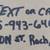 TEXT OR CA
5-943-64
ON ST. Roch